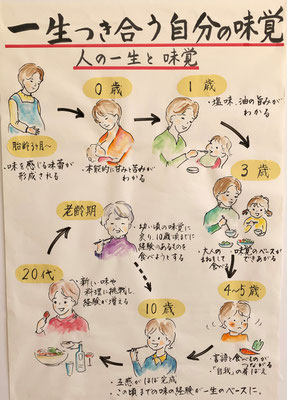 一生つき合う自分の味覚
人の一生と味覚
胎齢3ヶ月〜
・味を感じる味蕾が
形成される
0歳
・本能的に甘みと苦みが
わかる
1歳
・塩味、油の旨みが
わかる
3歳
・大人の
まねをして
食べる
・味覚のベースが
できあがる
4〜5歳
・言語と食べものが
つながる
・「自我」の芽ばえ
10歳
・五感がほぼ完成
・この頃までの味の経験が一生のベースに。
20代
・新しい味や
料理に挑戦し、
経験が増える
老齢期
・幼い頃の味覚に
戻り、10歳頃までに
経験のあるものを
食べようとする